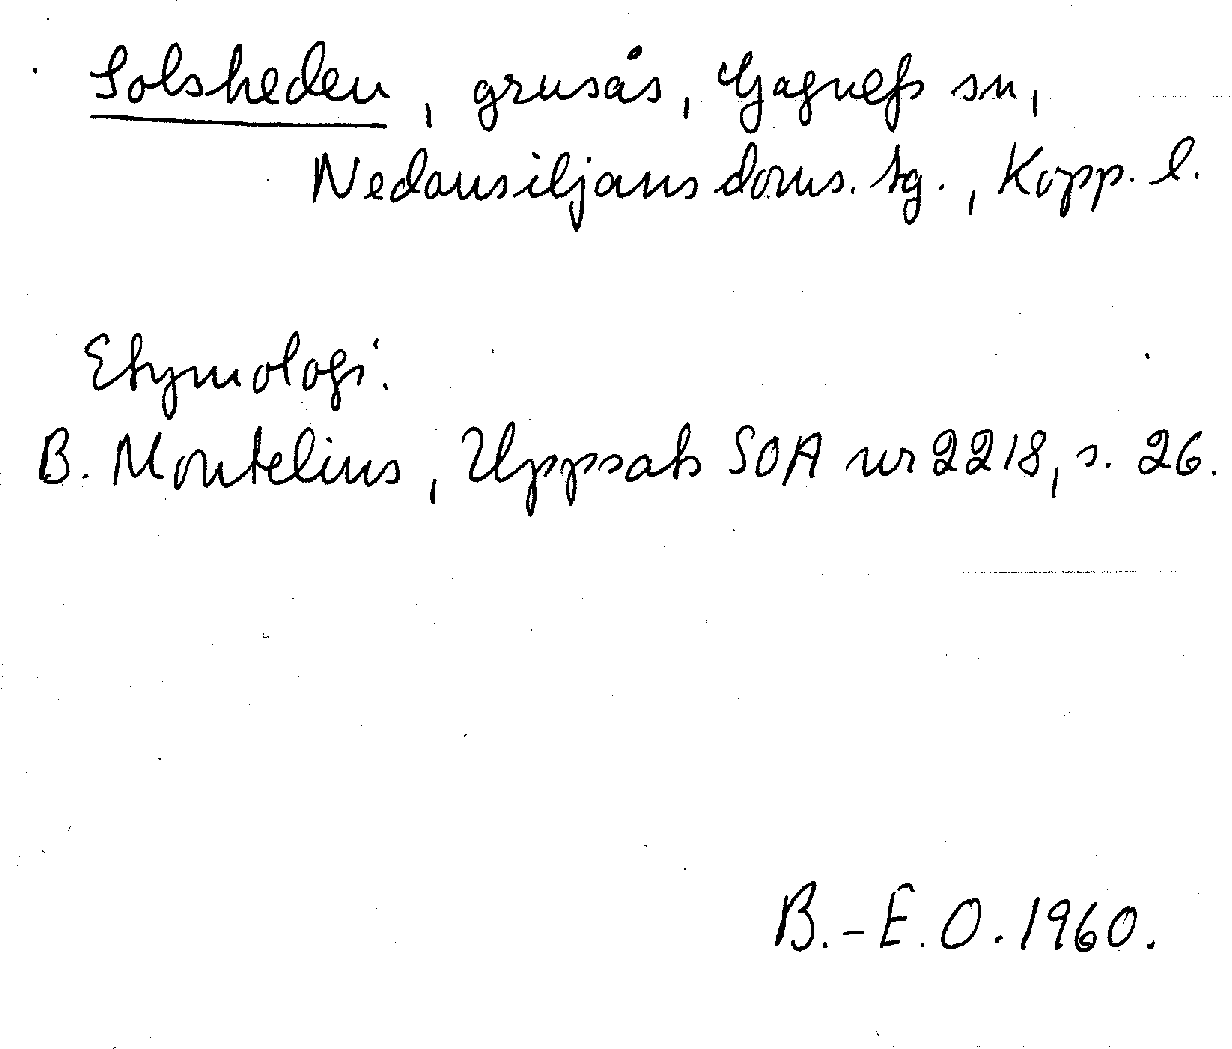 Solsheden, grusås, Gagnefs sn,
Nedansiljans doms. tg., Kopp. l.
Etymologi:
B. Montelius, Uppsats SOA nr 2218, s. 26.
B.-E. O. 1960.